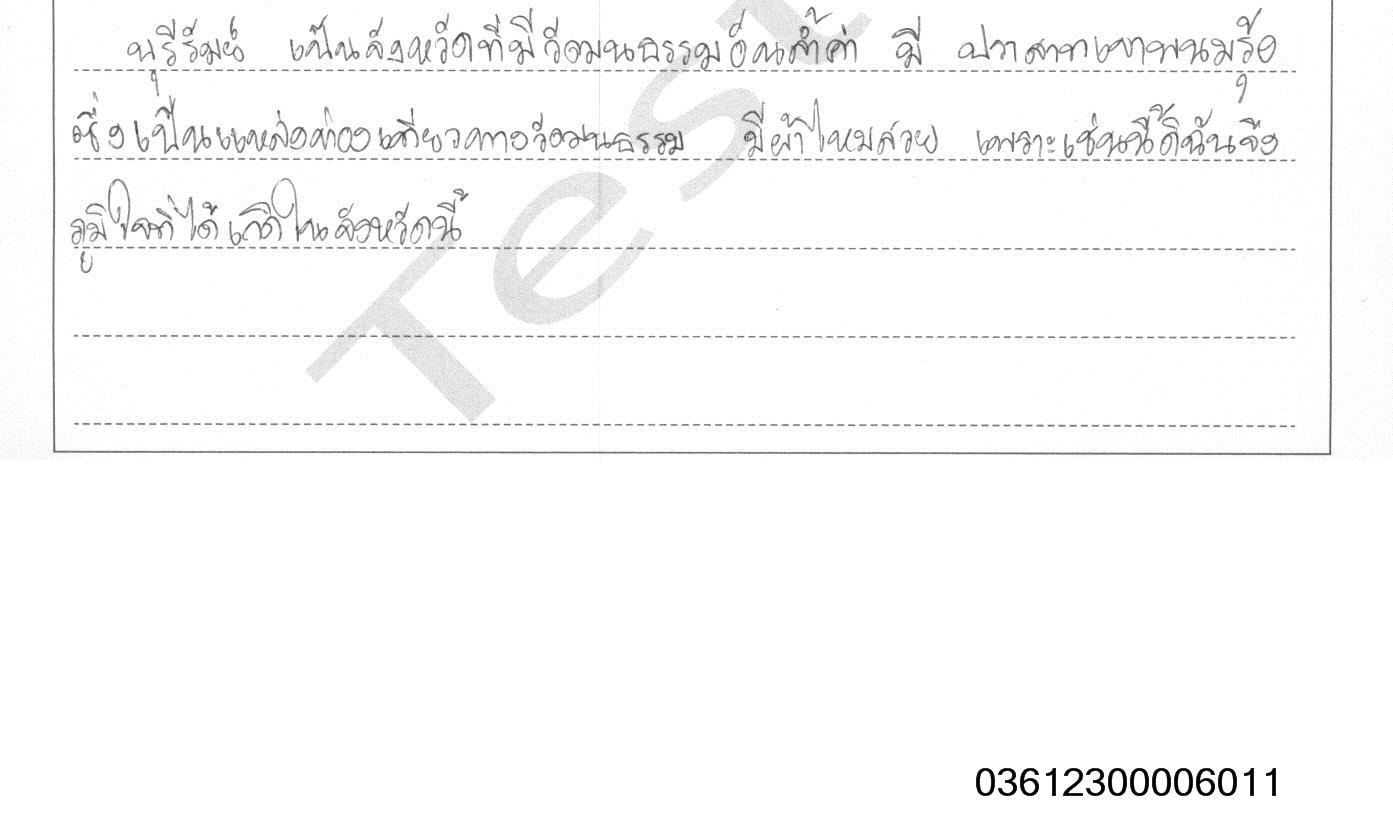 บุรีรัมย์ เป็นจังหวัดที่มีวัฒนธรรมอันล้ำค่า มี ปราสาทเขาพนมรุ้ง
ซึ่งเป็นแหล่งท่องเที่ยวทางวัฒนธรรม มีผ้าไหมสวย เพราะเช่นนี้ดิฉันจึง
ภูมิใจที่ได้เกิดในจังหวัดนี้
Test
03612300006011